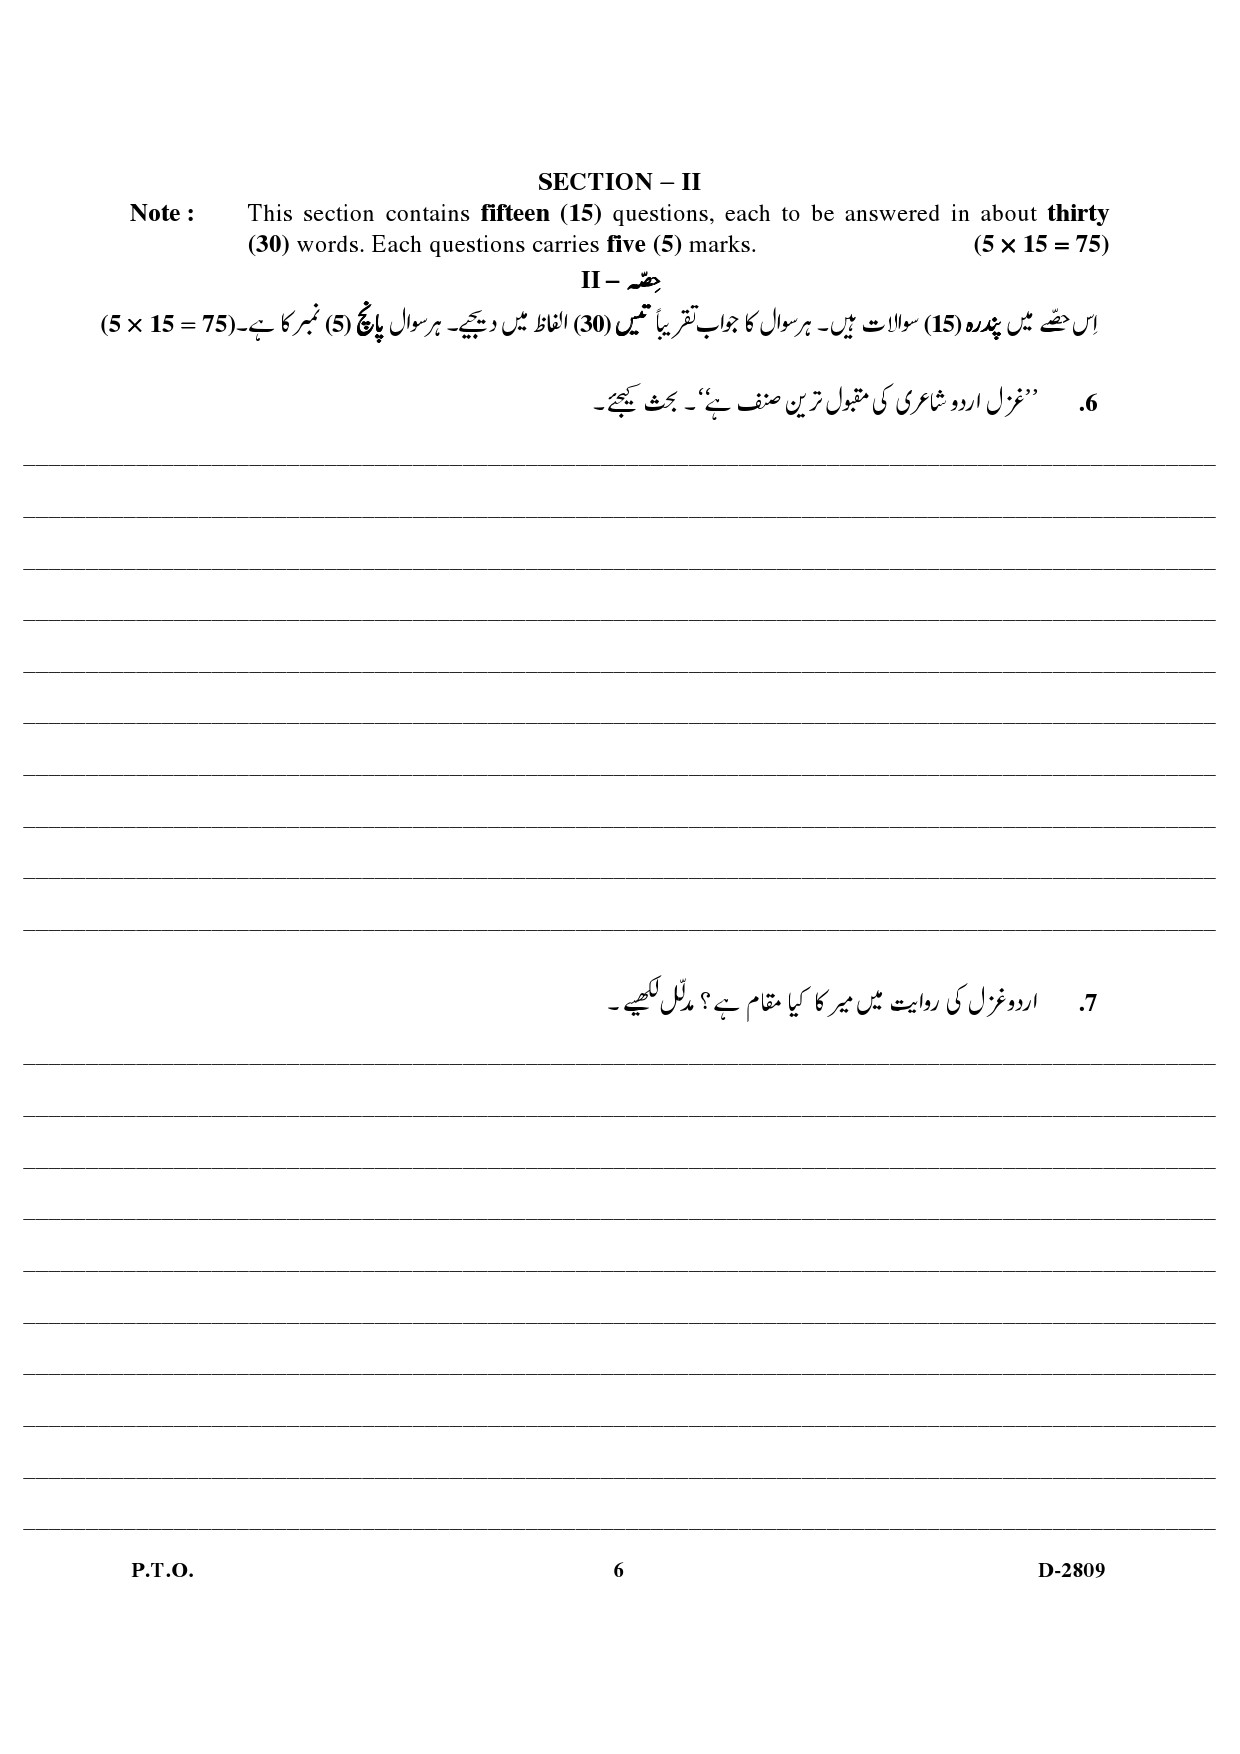 SECTION – II
Note : This section contains fifteen (15) questions, each to be answered in about thirty
(30) words. Each questions carries five (5) marks. (5 × 15 = 75)
حِصّہ – II
اِس حصّے میں پندرہ (15) سوالات ہیں۔ ہرسوال کا جواب تقریباً تیس (30) الفاظ میں دیجیے۔ ہرسوال پانچ (5) نمبر کا ہے۔ (5 × 15 = 75)
6. ’’غزل اردو شاعری کی مقبول ترین صنف ہے‘‘۔ بحث کیجئے۔
7. اردو غزل کی روایت میں میر کا کیا مقام ہے؟ مدلّل لکھیے۔
P.T.O. 6 D-2809